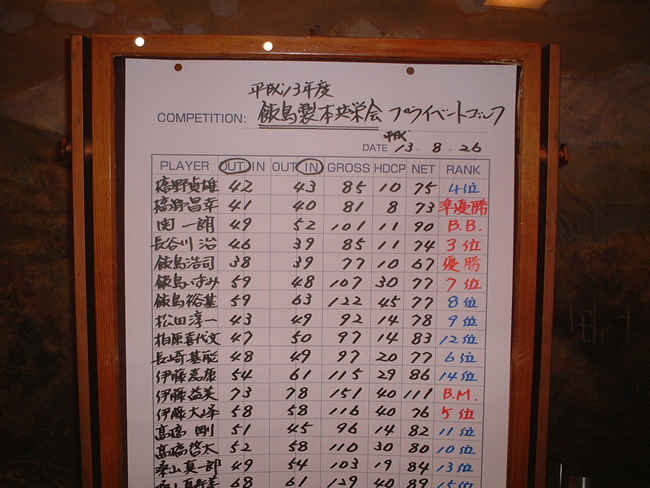 平成13年度
COMPETITION: 飯島製本共栄会 プライベートゴルフ
平成
DATE 13. 8. 26
PLAYER OUT IN OUT IN GROSS HDCP NET RANK
貞雄 42 43 85 10 75 4位
昌幸 41 40 81 8 73 準優勝
関 一 49 52 101 11 90 B.B.
長谷川 治 46 39 85 11 74 3位
飯島浩司 38 39 77 10 67 優勝
飯島いずみ 59 48 107 30 77 7位
飯島裕基 59 63 122 45 77 8位
松田淳一 43 49 92 14 78 9位
柏原喜代文 47 50 97 14 83 12位
長崎基能 48 49 97 20 77 6位
伊藤 54 61 115 29 86 14位
伊藤益美 73 78 151 40 111 B.M.
伊藤大峰 58 58 116 40 76 5位
高橋 剛 51 45 96 14 82 11位
高橋啓太 52 58 110 30 80 10位
桑山真一郎 49 54 103 19 84 13位
桑山真 68 61 129 40 89 15位